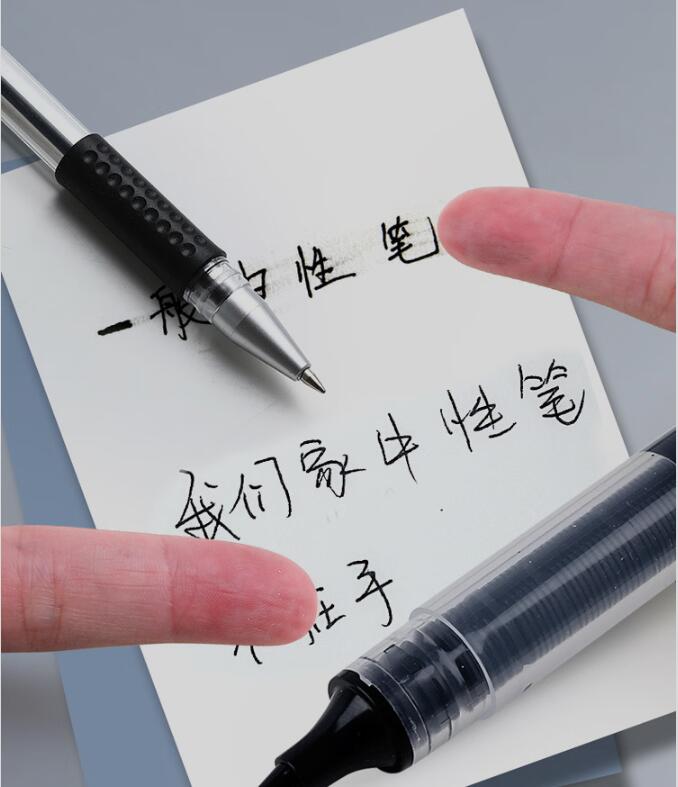 一般中性笔
我们家中性笔
不脏手